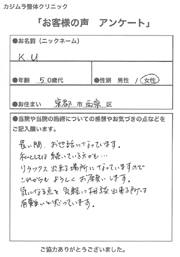 カジムラ整体クリニック
「お客様の声 アンケート」
●お名前(ニックネーム)
K.U
●年齢 50歳代 ●性別 男性 女性
●お住まい 京都市西京区
●当院や当院の施術についての感想やお気づきの点などをご記入願います。
長い間、お世話になっています。
私としては続いている方で…
リラックス出来る場所になっていますので
これからもよろしくお願いします。
気になる点を気軽に相談出来る所は
有難いと思っています。
ご協力ありがとうございました。